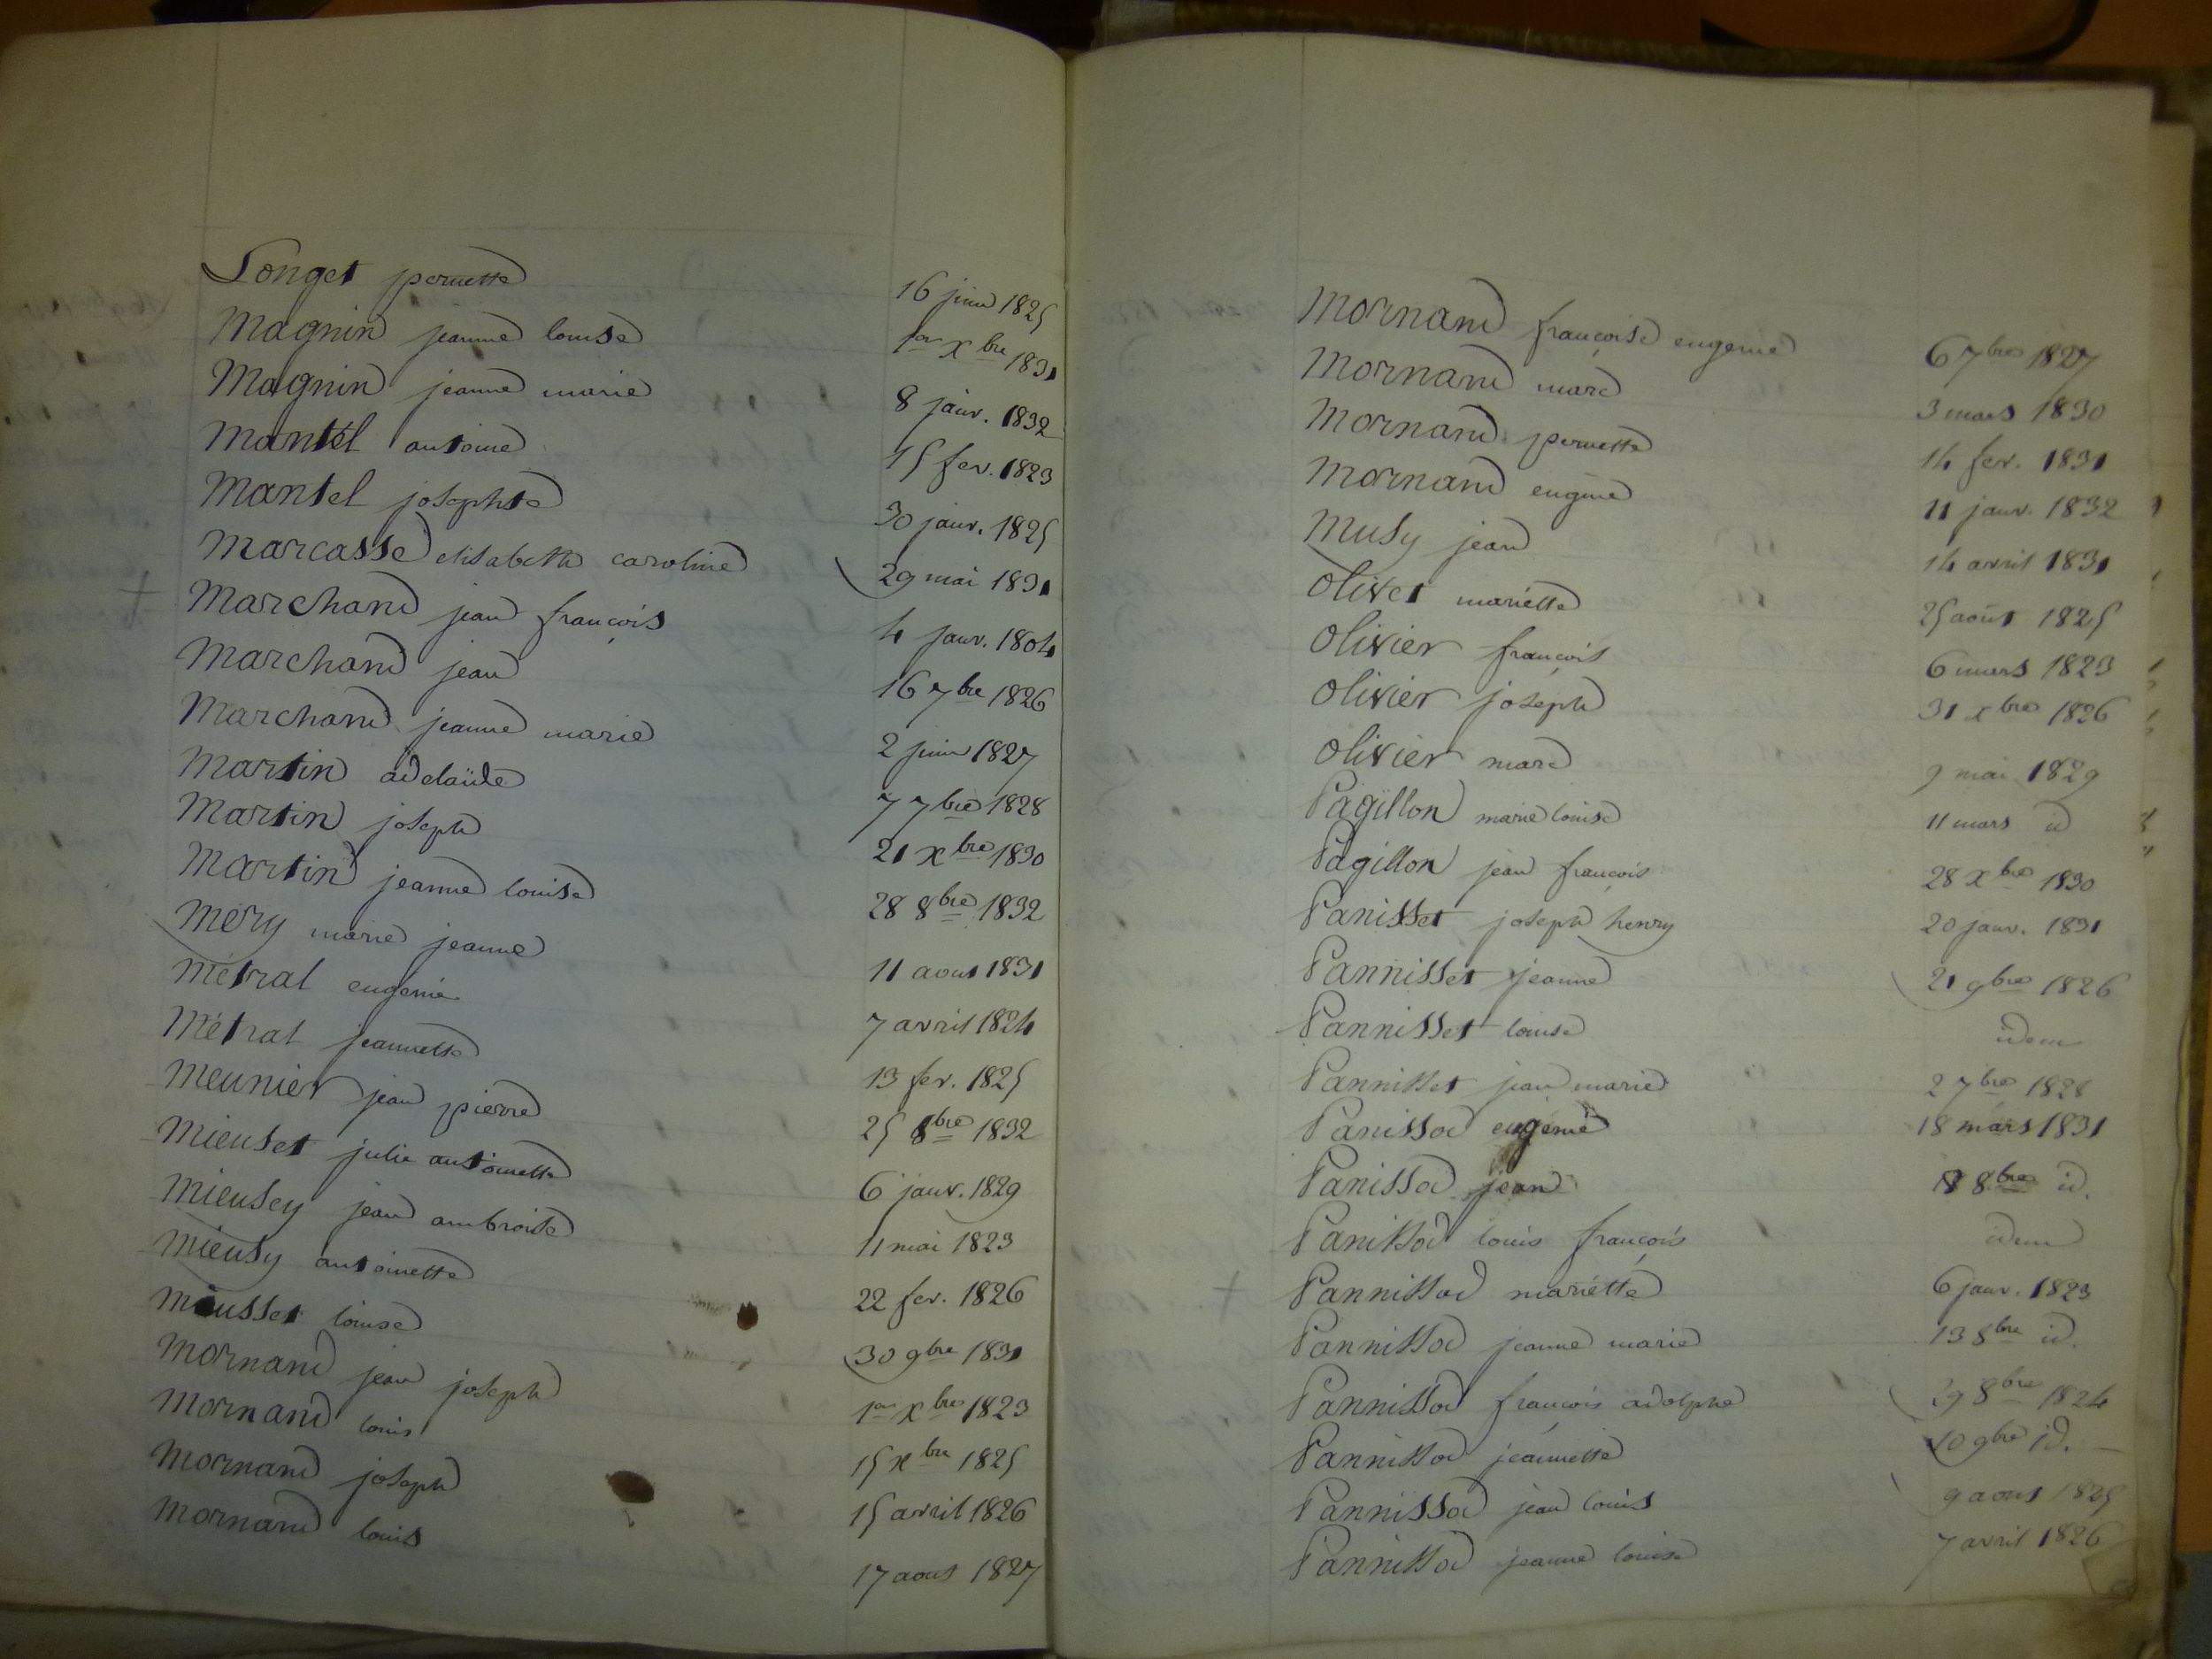 Longet pernette 16 juin 1825
Magnin jeanne louise 1er Xbre 1831
Magnin jeanne marie 8 janv. 1832
Mantel antoine 15 fev. 1823
Mantel josephte 30 janv. 1825
Marcasse elisabeth caroline 29 mai 1831
+ Marchand jean françois 4 janv. 1804
Marchand jean 16 7bre 1826
Marchand jeanne marie 2 juin 1827
Martin adelaïde 7 7bre 1828
Martin joseph 21 Xbre 1830
Martin jeanne louise 28 8bre 1832
Mery marie jeanne 11 aout 1831
Métral eugénie 7 avril 1824
Métral jeannette 13 fev. 1825
Meunier jean pierre 25 8bre 1832
Mieuset julie antoinette 6 janv. 1829
Mieusey jean ambroise 11 mai 1823
Mieusy antoinette 22 fev. 1826
louise 30 9bre 1831
Mornand jean joseph 1er Xbre 1823
Mornand louis 15 Xbre 1825
Mornand joseph 15 avril 1826
Mornand louis 17 aout 1827
Mornand françoise eugenie 6 7bre 1827
Mornand marc 3 mars 1830
Mornand pernette 14 fev. 1831
Mornand eugène 11 janv. 1832
Musy jean 14 avril 1831
Olivet mariette 25 août 1825
Olivier françois 6 mars 1823
Olivier joseph 31 Xbre 1826
Olivier marc 9 mai 1829
Pagillon marie louise 11 mars id
Pagillon jean françois 28 Xbre 1830
Panisset joseph henry 20 janv. 1831
Pannisset jeanne 21 9bre 1826
Pannisset louise idem
Pannisset jean marie 2 7bre 1828
Panissod eugénie 18 mars 1831
Panissod jean 8bre id.
Panissod louis françois idem
+ Pannissod mariette 6 janv. 1823
Pannissod jeanne marie 13 8bre id.
Pannissod françois adolphe 29 8bre 1824
Pannissod jeannette 10 9bre id.
Pannissod jean louis 9 aout 1825
Pannissod jeanne louise 7 avril 1826